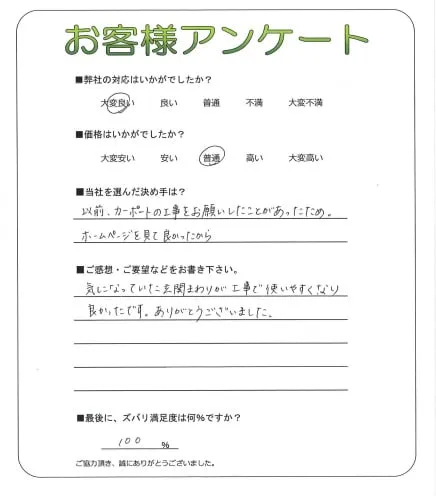 お客様アンケート
■弊社の対応はいかがでしたか？
大変良い 良い 普通 不満 大変不満
■価格はいかがでしたか？
大変安い 安い 普通 高い 大変高い
■当社を選んだ決め手は？
以前、カーポートの工事をお願いしたことがあったため。
ホームページを見て良かったから
■ご感想・ご要望などをお書き下さい。
気になっていた玄関まわりが工事で使いやすくなり
良かったです。ありがとうございました。
■最後に、ズバリ満足度は何%ですか？
100 %
ご協力頂き、誠にありがとうございました。